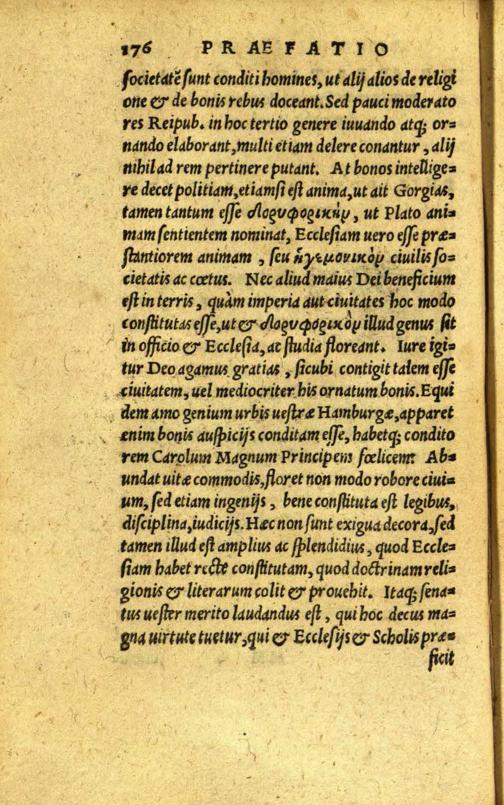 176 PRÆFATIO
societatẽ sunt conditi homines, ut alij alios de religi
one & de bonis rebus doceant. Sed pauci moderato
res Reipub. in hoc tertio genere iuuando atq; or=
nando elaborant, multi etiam delere conantur, alij
nihil ad rem pertinere putant. At bonos intellige=
re decet politiam, etiamsi est anima, ut ait Gorgias,
tamen tantum esse δορυφορικὴν, ut Plato ani=
mam sentientem nominat, Ecclesiam uero esse præ=
stantiorem animam, seu ἡγεμονικὸν ciuilis so=
cietatis ac cœtus. Nec aliud maius Dei beneficium
est in terris, quàm imperia aut ciuitates hoc modo
constitutas esse, ut & δορυφορικὸν illud genus sit
in officio & Ecclesia, ac studia floreant. Iure igi=
tur Deo agamus gratias, sicubi contigit talem esse
ciuitatem, uel mediocriter his ornatum bonis. Equi
dem amo genium urbis uestræ Hamburgæ, apparet
enim bonis auspicijs conditam esse, habetq; condito
rem Carolum Magnum Principem fœlicem: Ab=
undat uitæ commodis, floret non modo robore ciui=
um, sed etiam ingenijs, bene constituta est legibus,
disciplina, iudicijs. Hæc non sunt exigua decora, sed
tamen illud est amplius ac splendidius, quod Eccle=
siam habet rectè constitutam, quod doctrinam reli=
gionis & literarum colit & prouehit. Itaq; sena=
tus uester merito laudandus est, qui hoc decus ma=
gna uirtute tuetur, qui & Ecclesijs & Scholis præ=
ficit